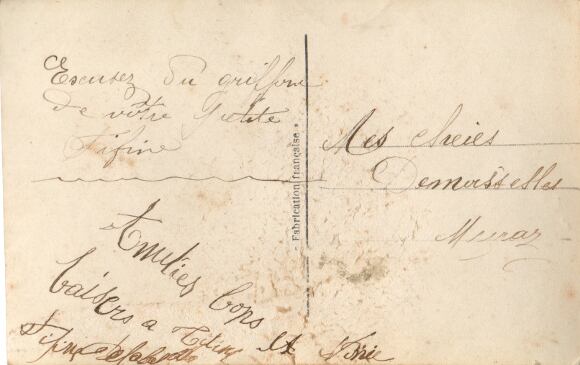 Escusez du griffone
de votre petite
Fifine
Amitiés bons
baisers a Titine et Ninie
- Fabrication française -
Mes cheres
Demoisselles
Meiraz